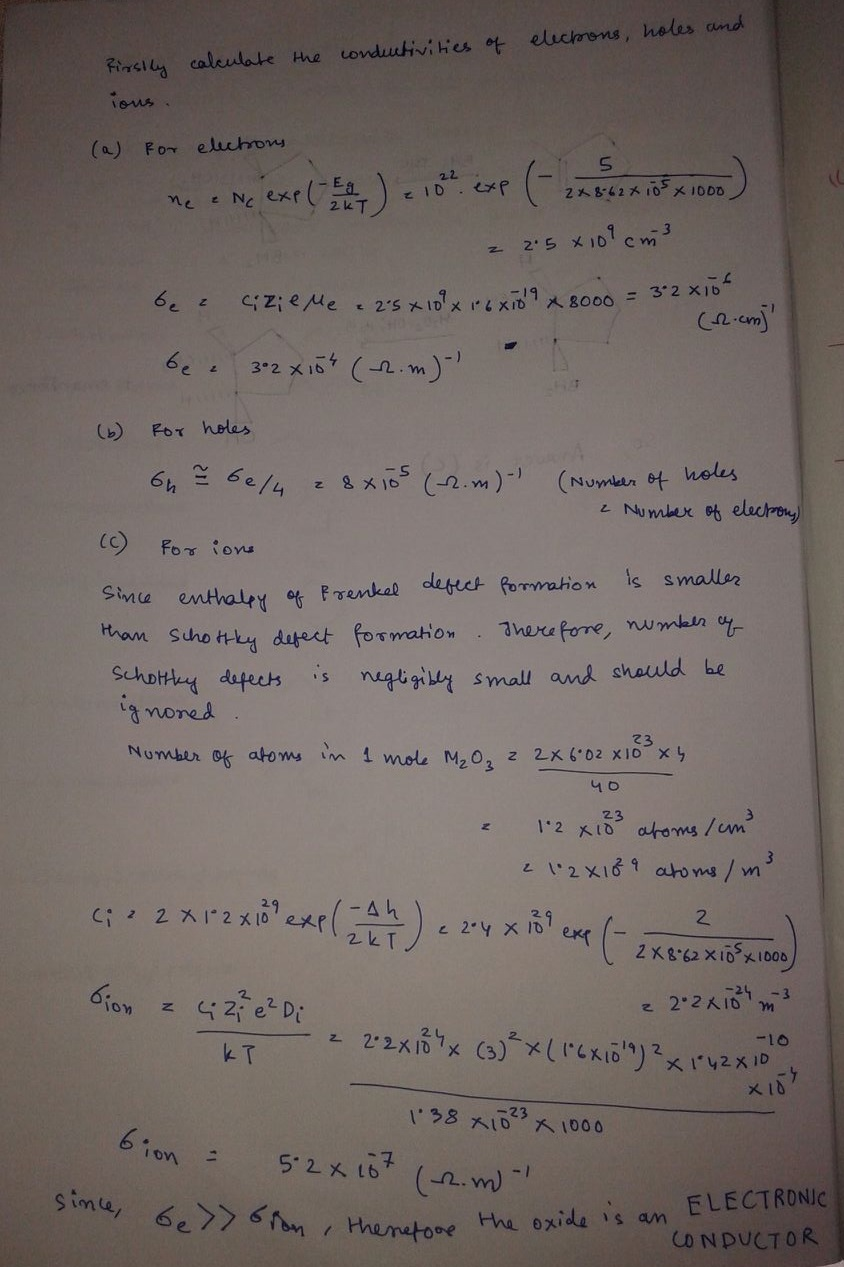 Firstly calculate the conductivities of electrons, holes and
ions.
(a) For electrons
ne = Nc exp(-Eg/2kT) = 10^22 . exp(- 5/(2×8.62×10^-5×1000))
= 2.5 × 10^9 cm^-3
σe = ci zi e μe = 2.5×10^9 × 1.6×10^-19 × 8000 = 3.2 × 10^-6 (Ω.cm)^-1
σe = 3.2 × 10^-4 (Ω.m)^-1
(b) For holes
σh ≅ σe/4 = 8 × 10^-5 (Ω.m)^-1 (Number of holes
= Number of electrons)
(c) For ions
Since enthalpy of Frenkel defect formation is smaller
than Schottky defect formation. Therefore, number of
Schottky defects is negligibly small and should be
ignored.
Number of atoms in 1 mole M2O3 = (2×6.02×10^23×4)/40
= 1.2 × 10^23 atoms/cm^3
= 1.2×10^29 atoms/m^3
ci = 2 × 1.2×10^29 exp(-Δh/2kT) = 2.4 × 10^29 exp(- 2/(2×8.62×10^-5×1000))
= 2.2×10^-24 m^-3
σion = (ci zi^2 e^2 Di)/kT = (2.2×10^24 × (3)^2 × (1.6×10^-19)^2 × 1.42×10^-10 × 10^-4)/(1.38 ×10^-23 × 1000)
σion = 5.2 × 10^-7 (Ω.m)^-1
Since, σe >> σion, therefore the oxide is an ELECTRONIC
CONDUCTOR